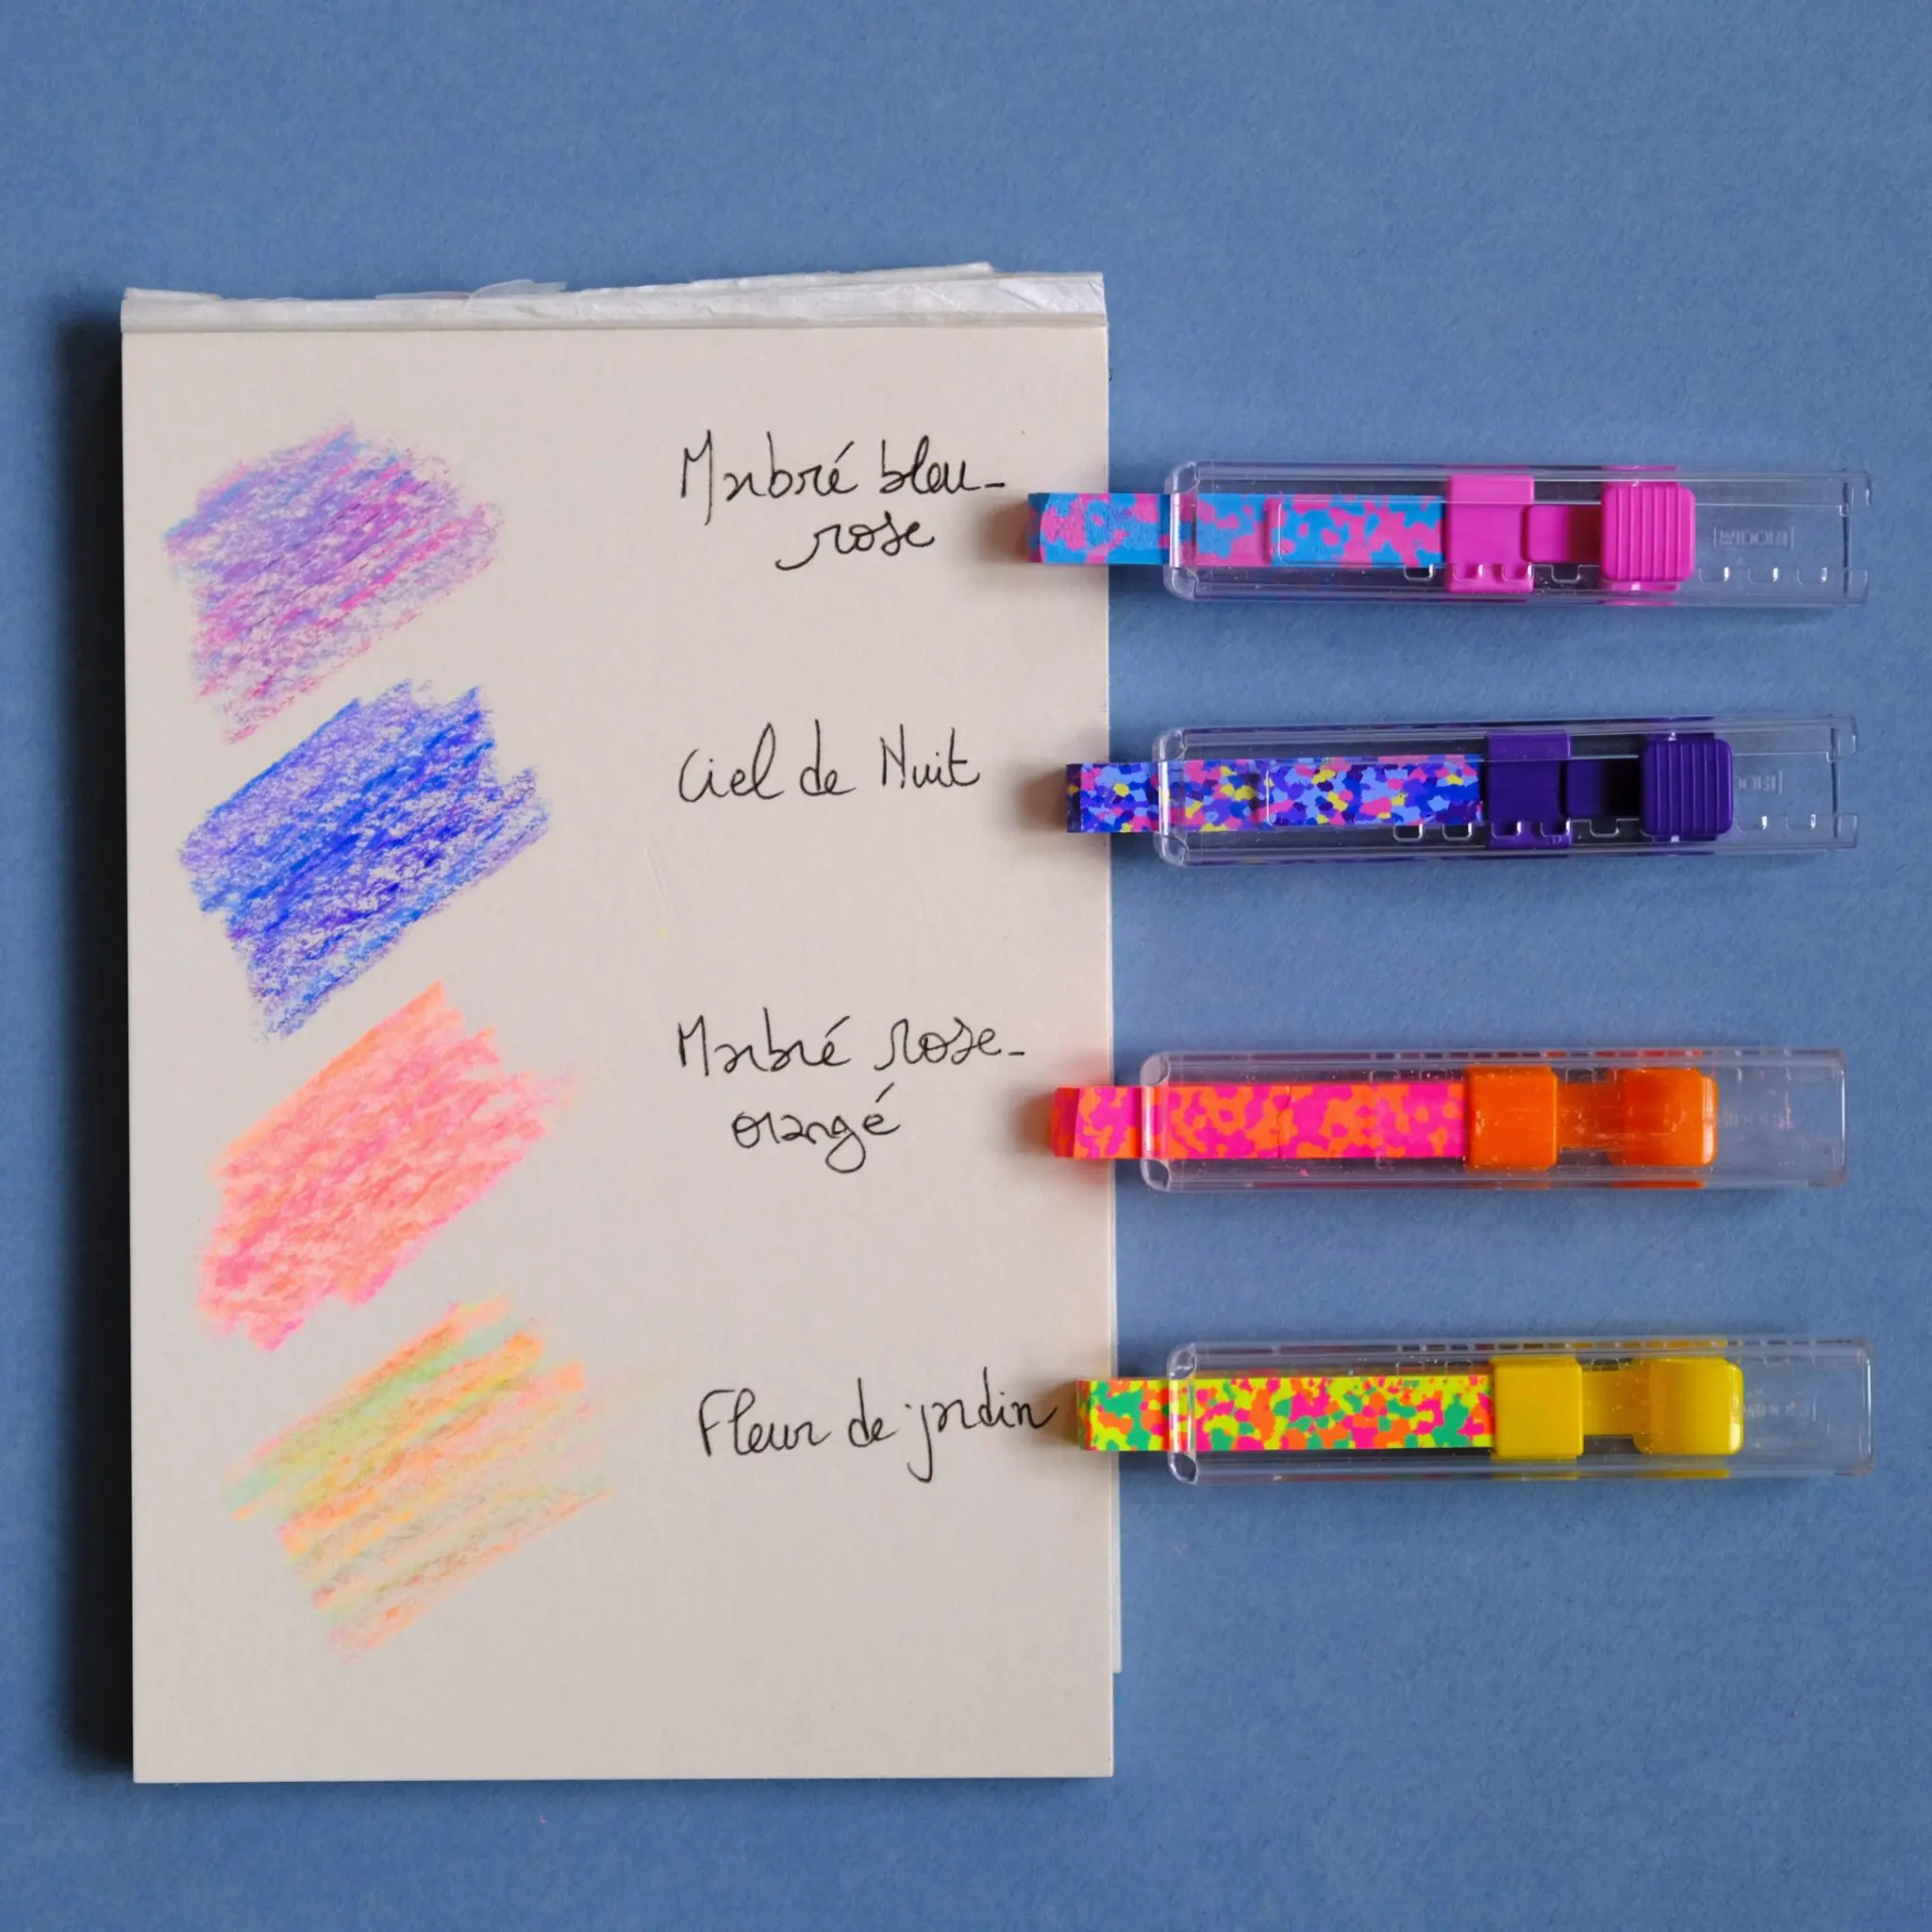 Marbré bleu-
rose
Ciel de Nuit
Marbré rose-
orangé
Fleur de jardin